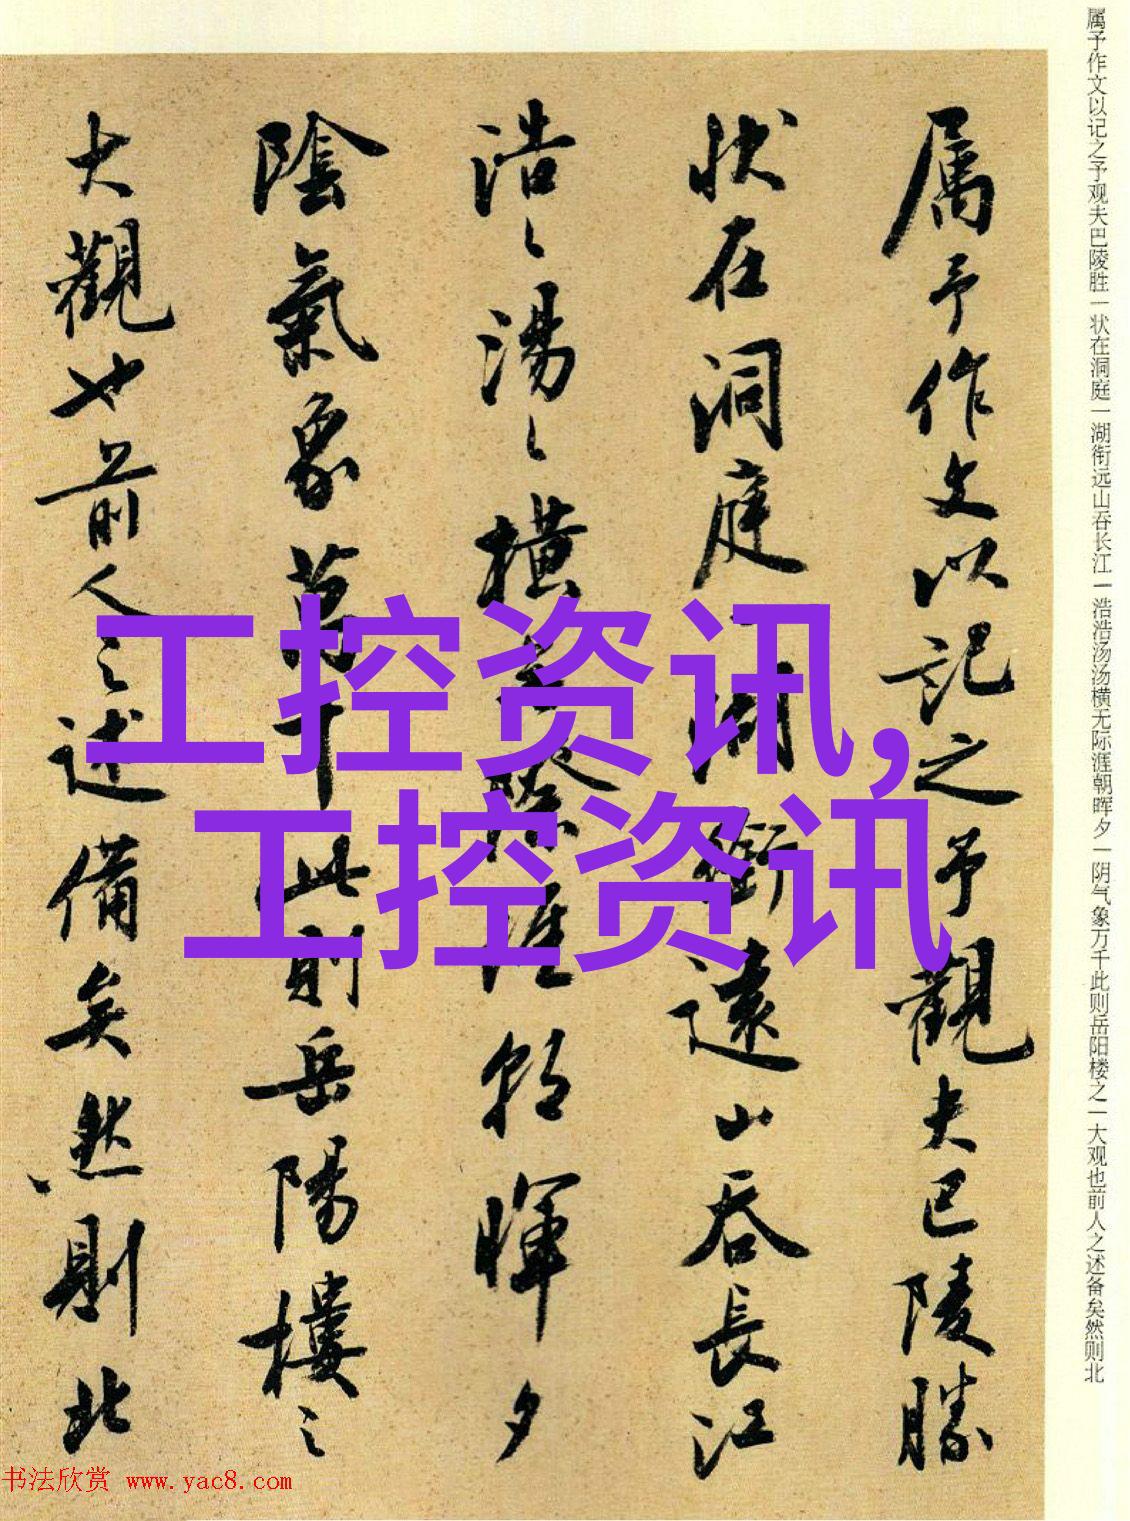 属予作文以记之予观夫巴陵胜一状在洞庭一湖衔远山吞长江一浩浩汤汤横无际涯朝晖夕一阴气象万千此则岳阳楼之一大观也前人之述备矣然则北
属予作文以記之予觀夫巴陵勝
状在洞庭一湖銜遠山吞長江
浩〻湯〻橫無際涯朝暉夕
陰氣象萬千此則岳陽樓之
大觀也前人之述備矣然則北
工控资讯,
工控资讯
书法欣赏 www.yac8.com